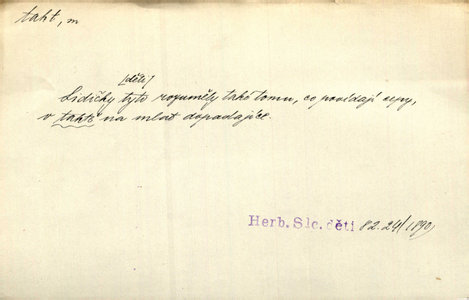 takt, m
[děti]
Lidičky tyto rozuměly také tomu, co povídají cepy,
v taktě na mlat dopadajíce.
Herb. Slc. děti 82.24/1890